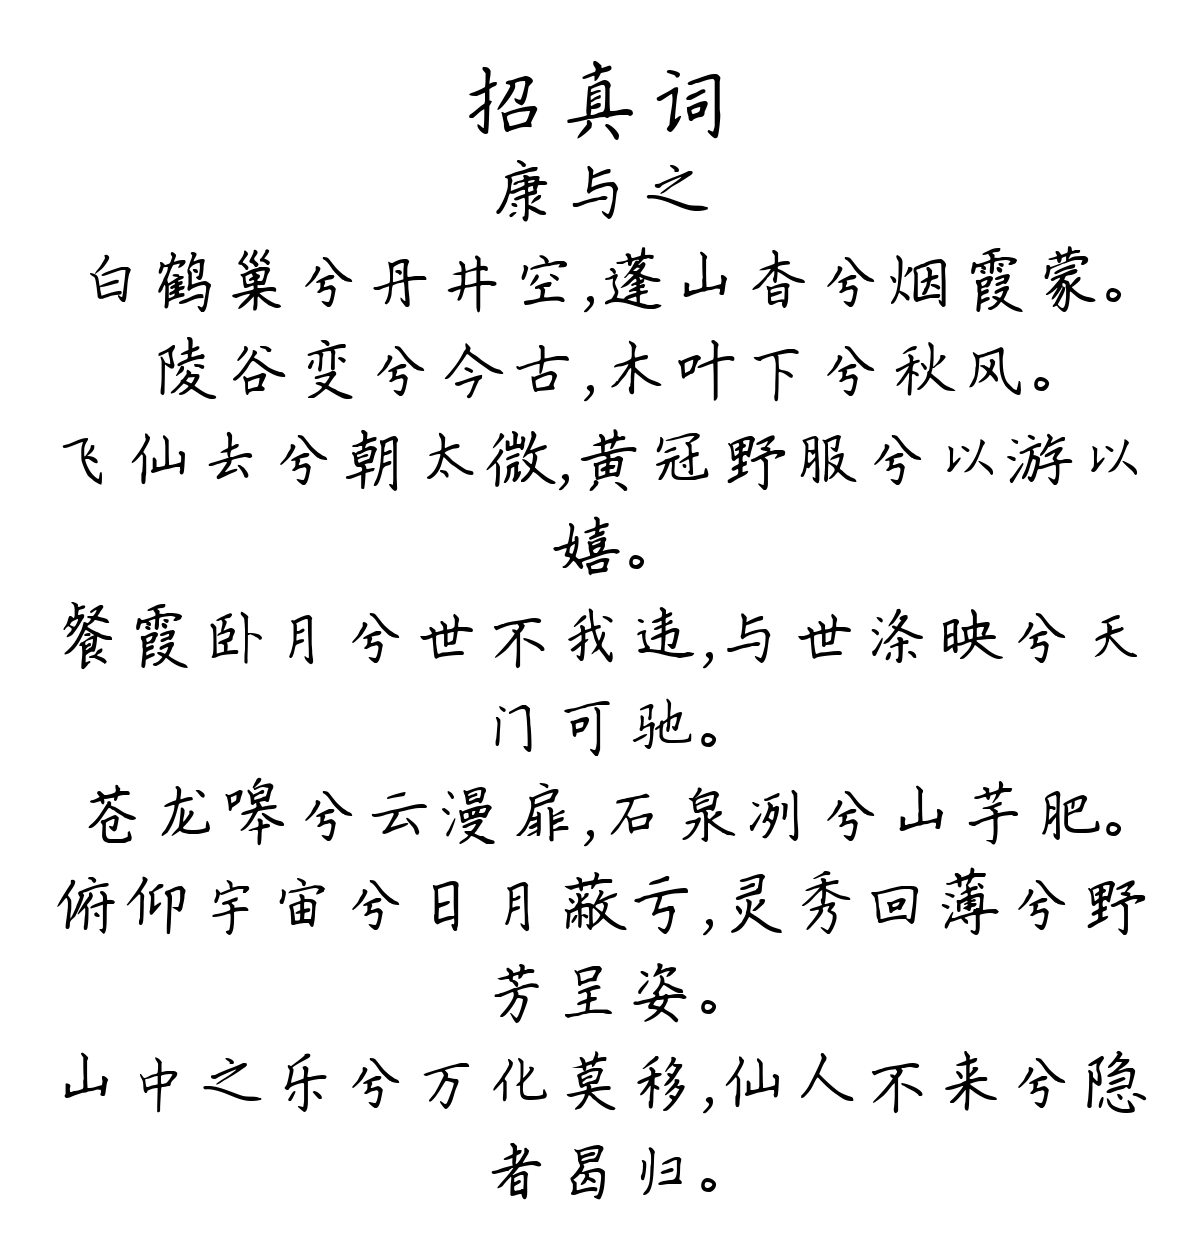 招真词
康与之
白鹤巢兮丹井空,蓬山杳兮烟霞蒙。
陵谷变兮今古,木叶下兮秋风。
飞仙去兮朝太微,黄冠野服兮以游以
嬉。
餐霞卧月兮世不我违,与世涤映兮天
门可驰。
苍龙嗥兮云漫扉,石泉冽兮山芋肥。
俯仰宇宙兮日月蔽亏,灵秀回薄兮野
芳呈姿。
山中之乐兮万化莫移,仙人不来兮隐
者曷归。